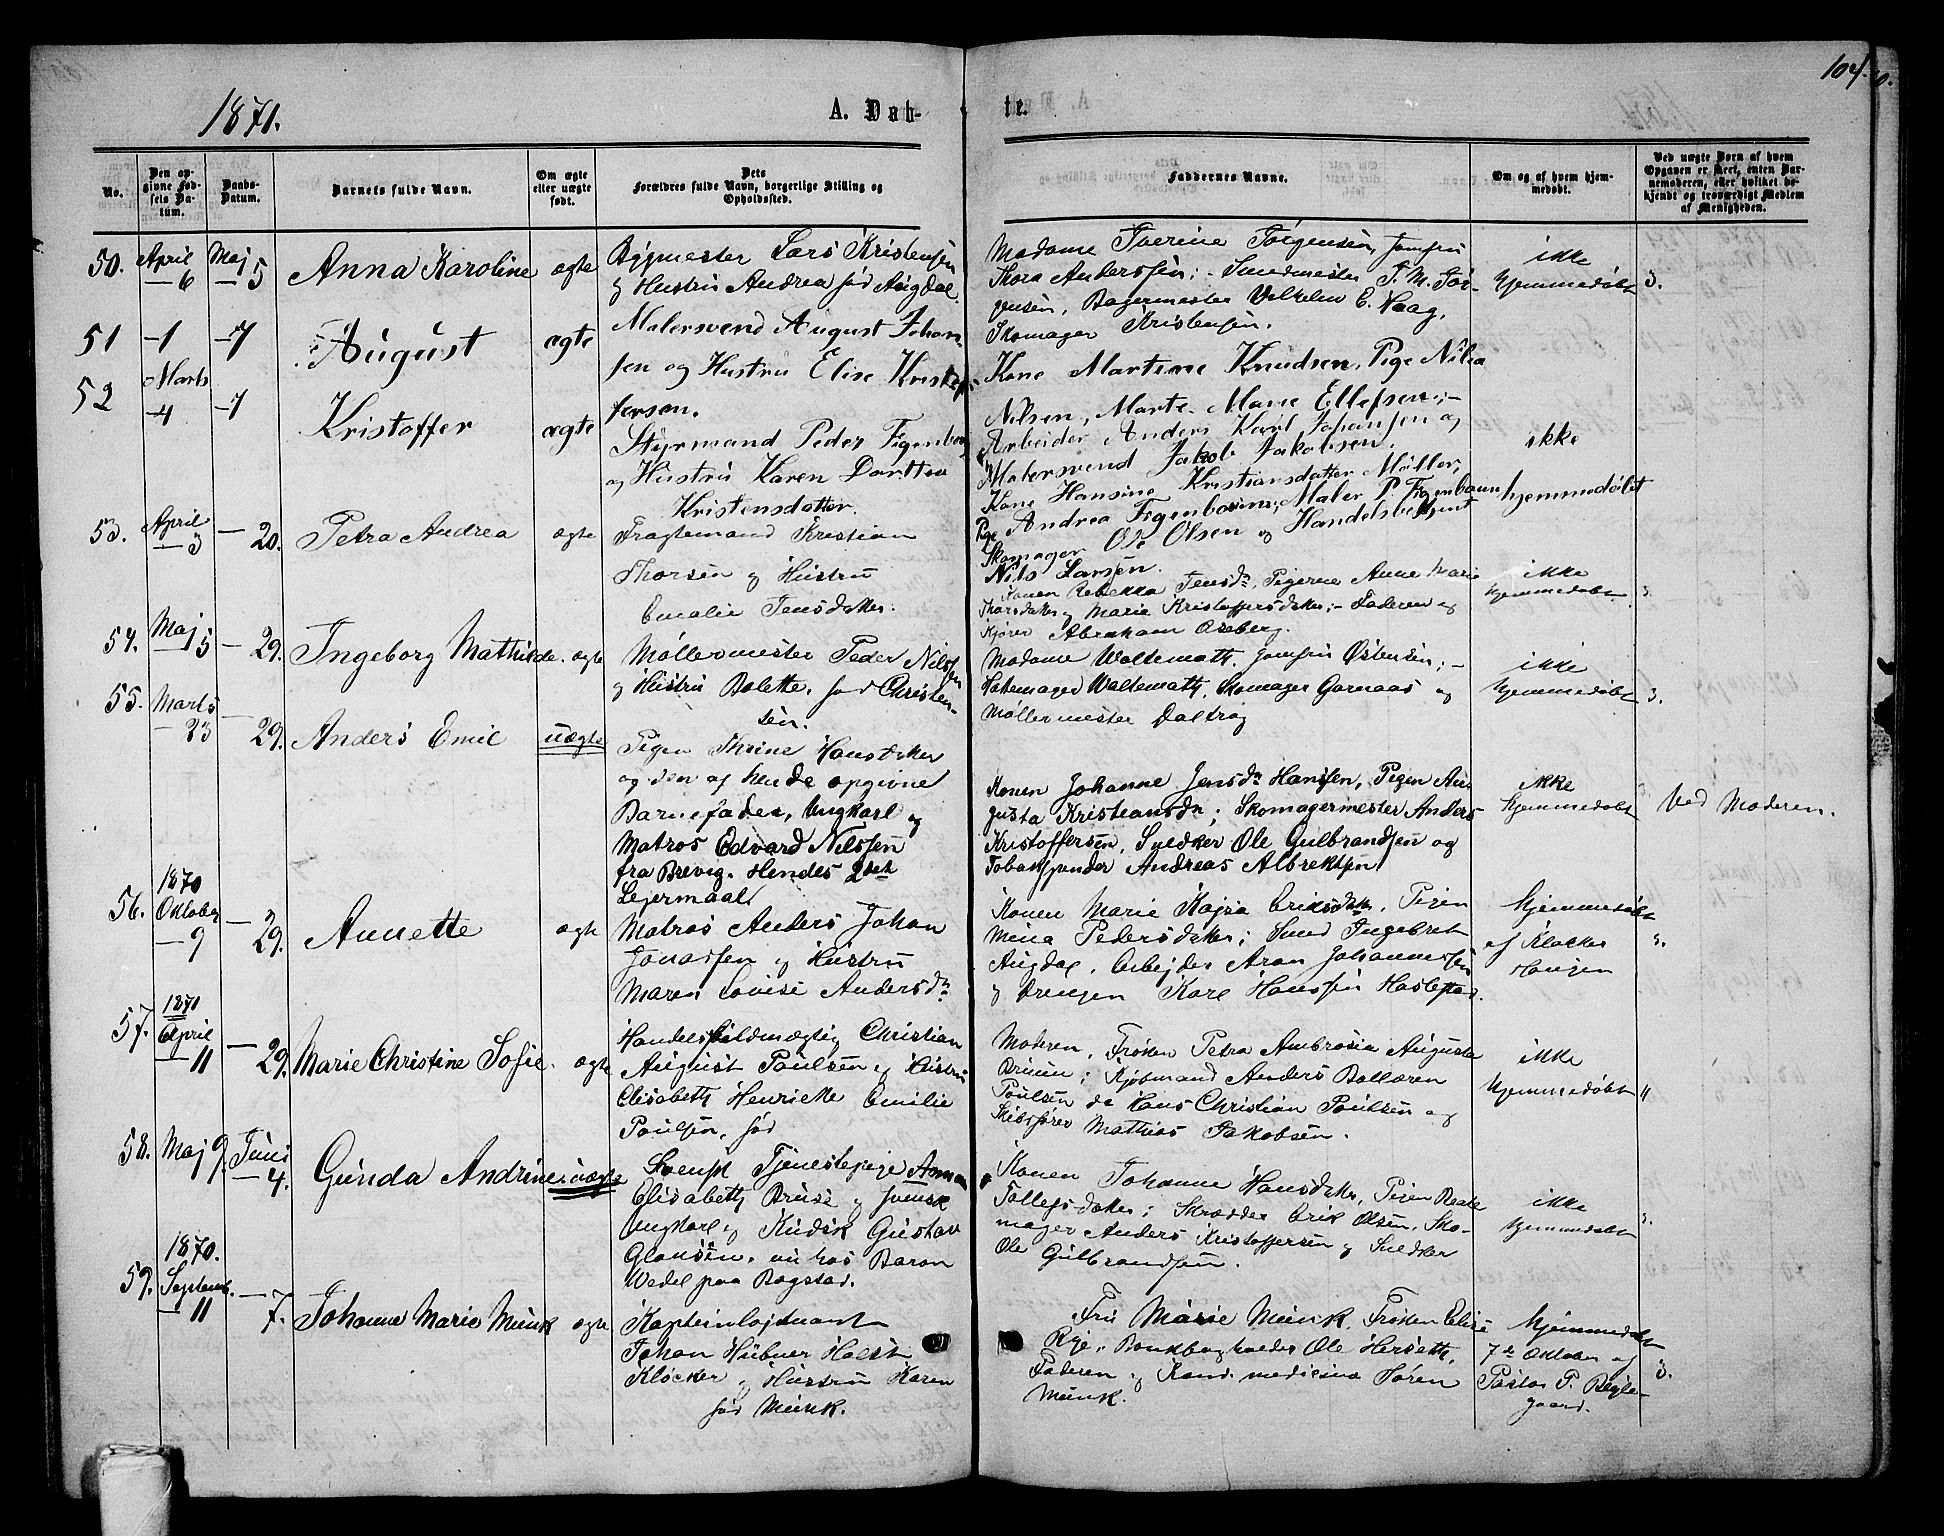 104.
1871.
A. Døb-
te.
No.
Den op-
givne Fød-
sels Da-
tum.
Daabs-
Datum.
Barnets fulde Navn.
Om ægte
eller uægte
født.
Dets
Forældres fulde Navn, borgerlige Stilling og
Opholdssted.
Faddernes Navne.
Om og af hvem hjem-
medøbt.
Ved uægte Børn af hvem
Opgaven er skeet, enten Bar-
nemoderen, eller hvilket be-
kjendt og troværdigt Medlem
af Menigheden.
50.
April
— 6
Maj
— 5
Anna Karoline
ægte
Bygmester Lars Kristensen
og Hustru Andrea fød Aagdal.
Madame Thorine Jørgensen, Jomfru
Thora Anderssen; - Smedmester J. M. Jør-
gensen, Bagermester Vilhelm E. Haag,
Skomager Kristensen.
ikke
hjemmedøbt
51
— 1
— 7
August
ægte
Malersvend August Johan-
sen og Hustru Elise Kristof-
fersen.
Kone Martine Knudsen, Pige Nilia
Nilsen, Marte Marie Ellefsen; -
Arbeider Anders Karl Johansen og
Malersvend Jakob Jakobsen.
52
Marts
— 4
— 7
Kristoffer
ægte
Styrmand Peder Figenbom
og Hustru Karen Dorthea
Kristensdatter.
Kone Hansine Kristiansdatter Møller,
Pige Andrea Figenbom; Maler P. Figenbaum
Skomager Ole Olsen og Handelsbetjent
Nils Larsen.
ikke
hjemmedøbt
53.
April
— 3
— 20.
Petra Andrea
ægte
Fragtemand Kristian
Thorsen og Hustru
Emalie Jensdatter.
Konen Rebekka Jensdr, Pigerne Anne Marie
Thorsdatter og Marie Kristoffersdatter; - Faderen og
Kjører Abraham Oseberg.
ikke
hjemmedøbt
54.
Maj
— 5
— 29.
Ingeborg Mathilde.
ægte
Møllermester Peder Nilssen
og Hustru Bolette, fød Christen-
sen.
Madame Waltemath, Jomfru Østensen; -
Hatemager Waltemath, Skomager Garnaas og
Møllermester Daltrog
ikke
hjemmedøbt
55.
Marts
— 23
— 29.
Anders Emil
uægte
Pigen Thrine Hansdatter
og den af hende opgivne
Barnefader, Ungkarl og
Matros Edvard Nilssen
fra Brevig. Hendes 2det
Lejermaal
Konen Johanne Jensdr Hanssen, Pigen Au-
gusta Kristiansdr; Skomagermester Anders
Kristoffersen, Snedker Ole Gulbrandsen og
Tobakspinder Andreas Albrektsen
ikke
hjemmedøbt
Ved Moderen.
56.
1870
Oktober
— 9
— 29.
Annette
ægte
Matros Anders Johan
Jonassen og Hustru
Maren Lovise Andersdr.
Konen Marie Kajsa Eriksdatter, Pigen
Mina Pedersdatter; Smed Ingebret
Augdal, Arbejder Aron Johannessen
og Drengen Karl Hanssen Haslestad.
Hjemmedøbt
af Klokker
Haugen
57.
1870
April
— 11
— 29.
Marie Christine Sofie.
ægte
Handelsfuldmægtig Christian
August Poulsen og Hustru
Elisabeth Henriette Emilie
Poulsen, fød
Moderen, Frøken Petra Ambrosia Augusta
Bruun; Kjøbmand Anders Bollæren
Poulsen do Hans Christian Poulsen og
Skibsfører Mathias Jakobsen.
ikke
hjemmedøbt
58.
Maj 9
Juni
— 4.
Gunda Andrine
uægte
Svensk Tjenestepige Anna
Elisabeth Bruse og svensk
Ungkarl og Kudsk Gustav
Glansén, nu hos Baron
Wedel paa Bogstad.
Konen Johanne Hansdatter, Pigen Beate
Tollefsdatter; Skrædder Erik Olsen, Sko-
mager Anders Kristoffersen og Snedker
Ole Gulbrandsen.
ikke
hjemmedøbt
59.
1870.
Septemb.
— 11
— 7.
Johanne Marie Munk
ægte
Kapteinløjtnant
Johan Hübner Holst
Kløcker og Hustru Karen
fød Munk.
Fru Marie Munk, Frøken Elise
Rye, Bankbogholder Ole Hersetth,
Faderen og Kand. medicina Søren
Munk.
Hjemmedøbt
7de Oktober af
Pastor P. Bugge-
gaard.